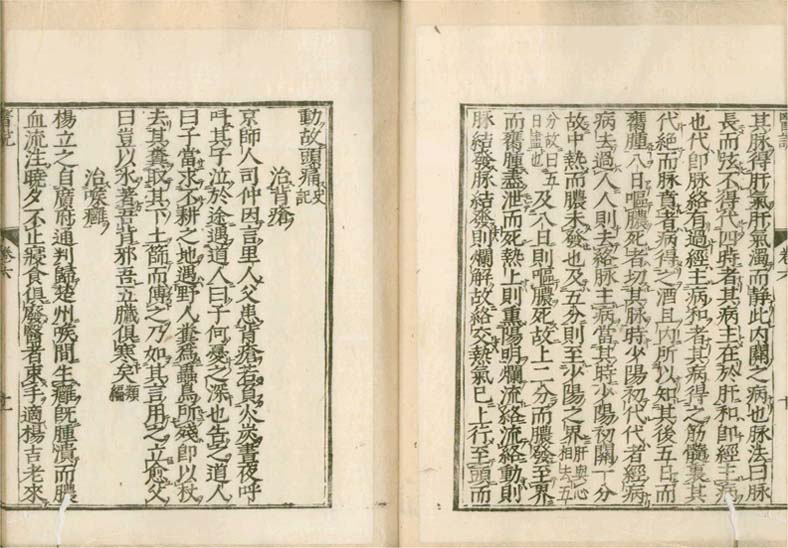 醫說
卷六
十
其脉得肝氣肝氣濁而靜此內關之病也脉法曰脉
長而弦不得代四時者其病主在於肝和卽經主病
也代卽脉絡有過經主病和者其病得之筋髓裏其
代絕而脉賁者病得之酒且內所以知其後五日而
癰腫八日嘔膿死者切其脉時少陽初代代者經病
病去過人人則去絡脉主病當其時少陽初關一分
故中熱而膿未發也及五分則至少陽之界肝與心相去五
分故曰五日盡也及八日則嘔膿死故上二分而膿發至界
而癰腫盡泄而死熱上則熏陽明爛流絡流絡動則
脉結發脉結發則爛解故絡交熱氣已上行至頭而
動故頭痛史記
治背瘡
京師人司仲因言里人父患背瘡若負火炭晝夜呼
叫其子泣於途遇道人曰子何憂之深也告之道人
曰子當求不耕之地遇野人糞爲蟲鳥所殘卽以杖
去其糞取其下土篩而傅之乃如其言用之立愈父
曰豈以氷著吾背邪吾五臟俱寒矣類編
治喉癰
楊立之自廣府通判歸楚州喉間生癰旣腫潰而膿
血流注曉夕不止寢食俱廢醫者束手適楊吉老來
醫說
卷六
十一